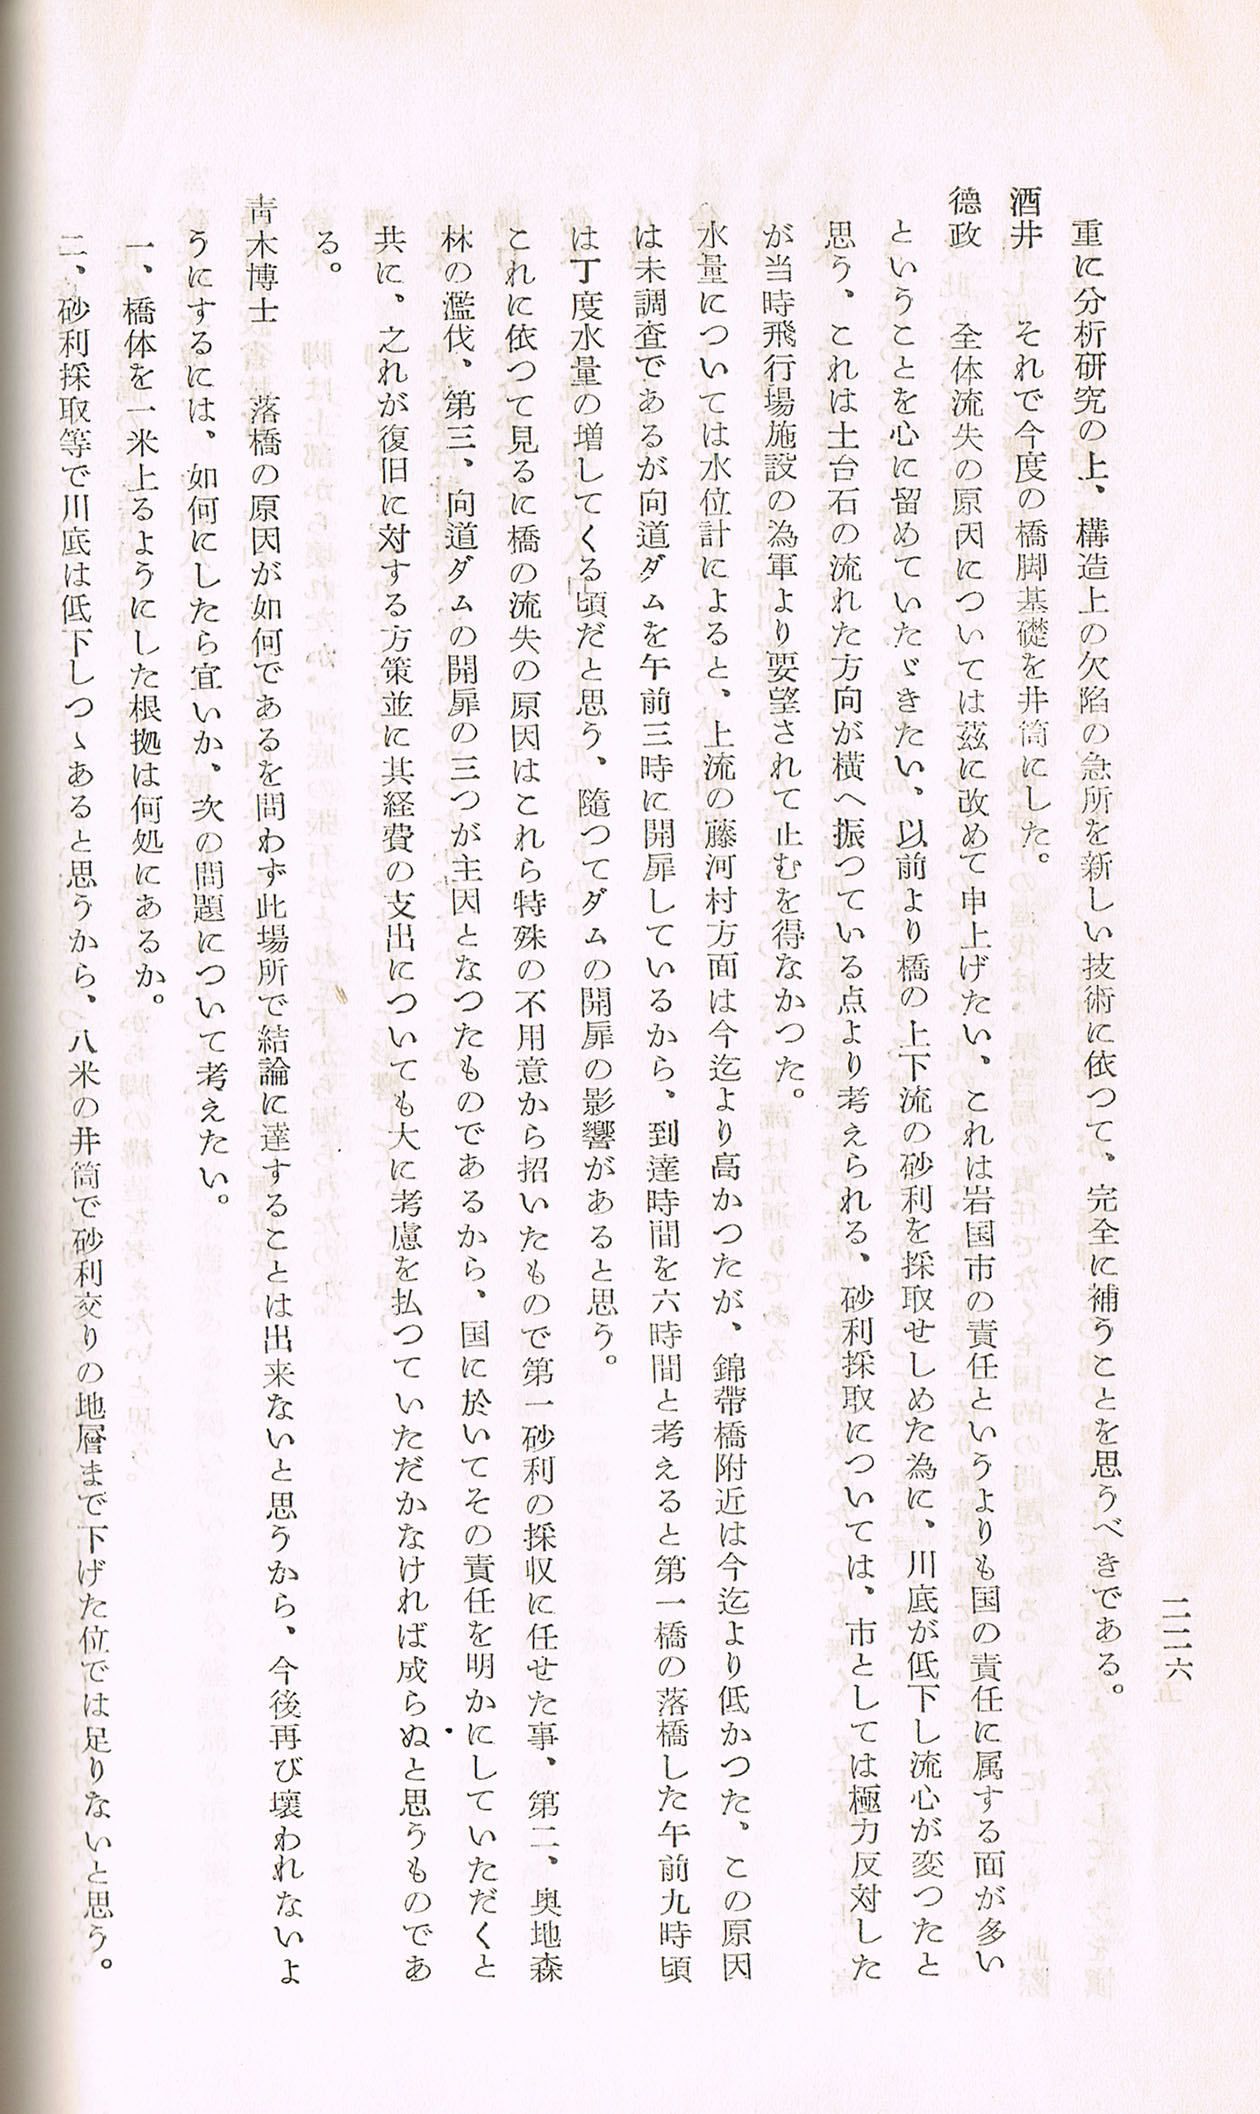 二二六
重に分析研究の上、構造上の欠陥の急所を新しい技術に依つて、完全に補うことを思うべきである。
酒井　それで今度の橋脚基礎を井筒にした。
徳政　全体流失の原因については茲に改めて申上げたい、これは岩国市の責任というよりも国の責任に属する面が多い
ということを心に留めていたゞきたい、以前より橋の上下流の砂利を採取せしめた為に、川底が低下し流心が変つたと
思う、これは土台石の流れた方向が横へ振つている点より考えられる、砂利採取については、市としては極力反対した
が当時飛行場施設の為軍より要望されて止むを得なかつた。
水量については水位計によると、上流の藤河村方面は今迄より高かつたが、錦帯橋附近は今迄より低かつた、この原因
は未調査であるが向道ダムを午前三時に開扉しているから、到達時間を六時間と考えると第一橋の落橋した午前九時頃
は丁度水量の増してくる頃だと思う、随つてダムの開扉の影響があると思う。
これに依つて見るに橋の流失の原因はこれら特殊の不用意から招いたもので第一砂利の採収に任せた事、第二、奥地森
林の濫伐、第三、向道ダムの開扉の三つが主因となつたものであるから、国に於いてその責任を明かにしていただくと
共に、之れが復旧に対する方策並に其経費の支出についても大に考慮を払つていただかなければ成らぬと思うものであ
る。
青木博士　落橋の原因が如何であるを問わず此場所で結論に達することは出来ないと思うから、今後再び壊われないよ
うにするには、如何にしたら宜いか、次の問題について考えたい。
一、橋体を一米上るようにした根拠は何処にあるか。
二、砂利採取等で川底は低下しつゝあると思うから、八米の井筒で砂利交りの地層まで下げた位では足りないと思う。